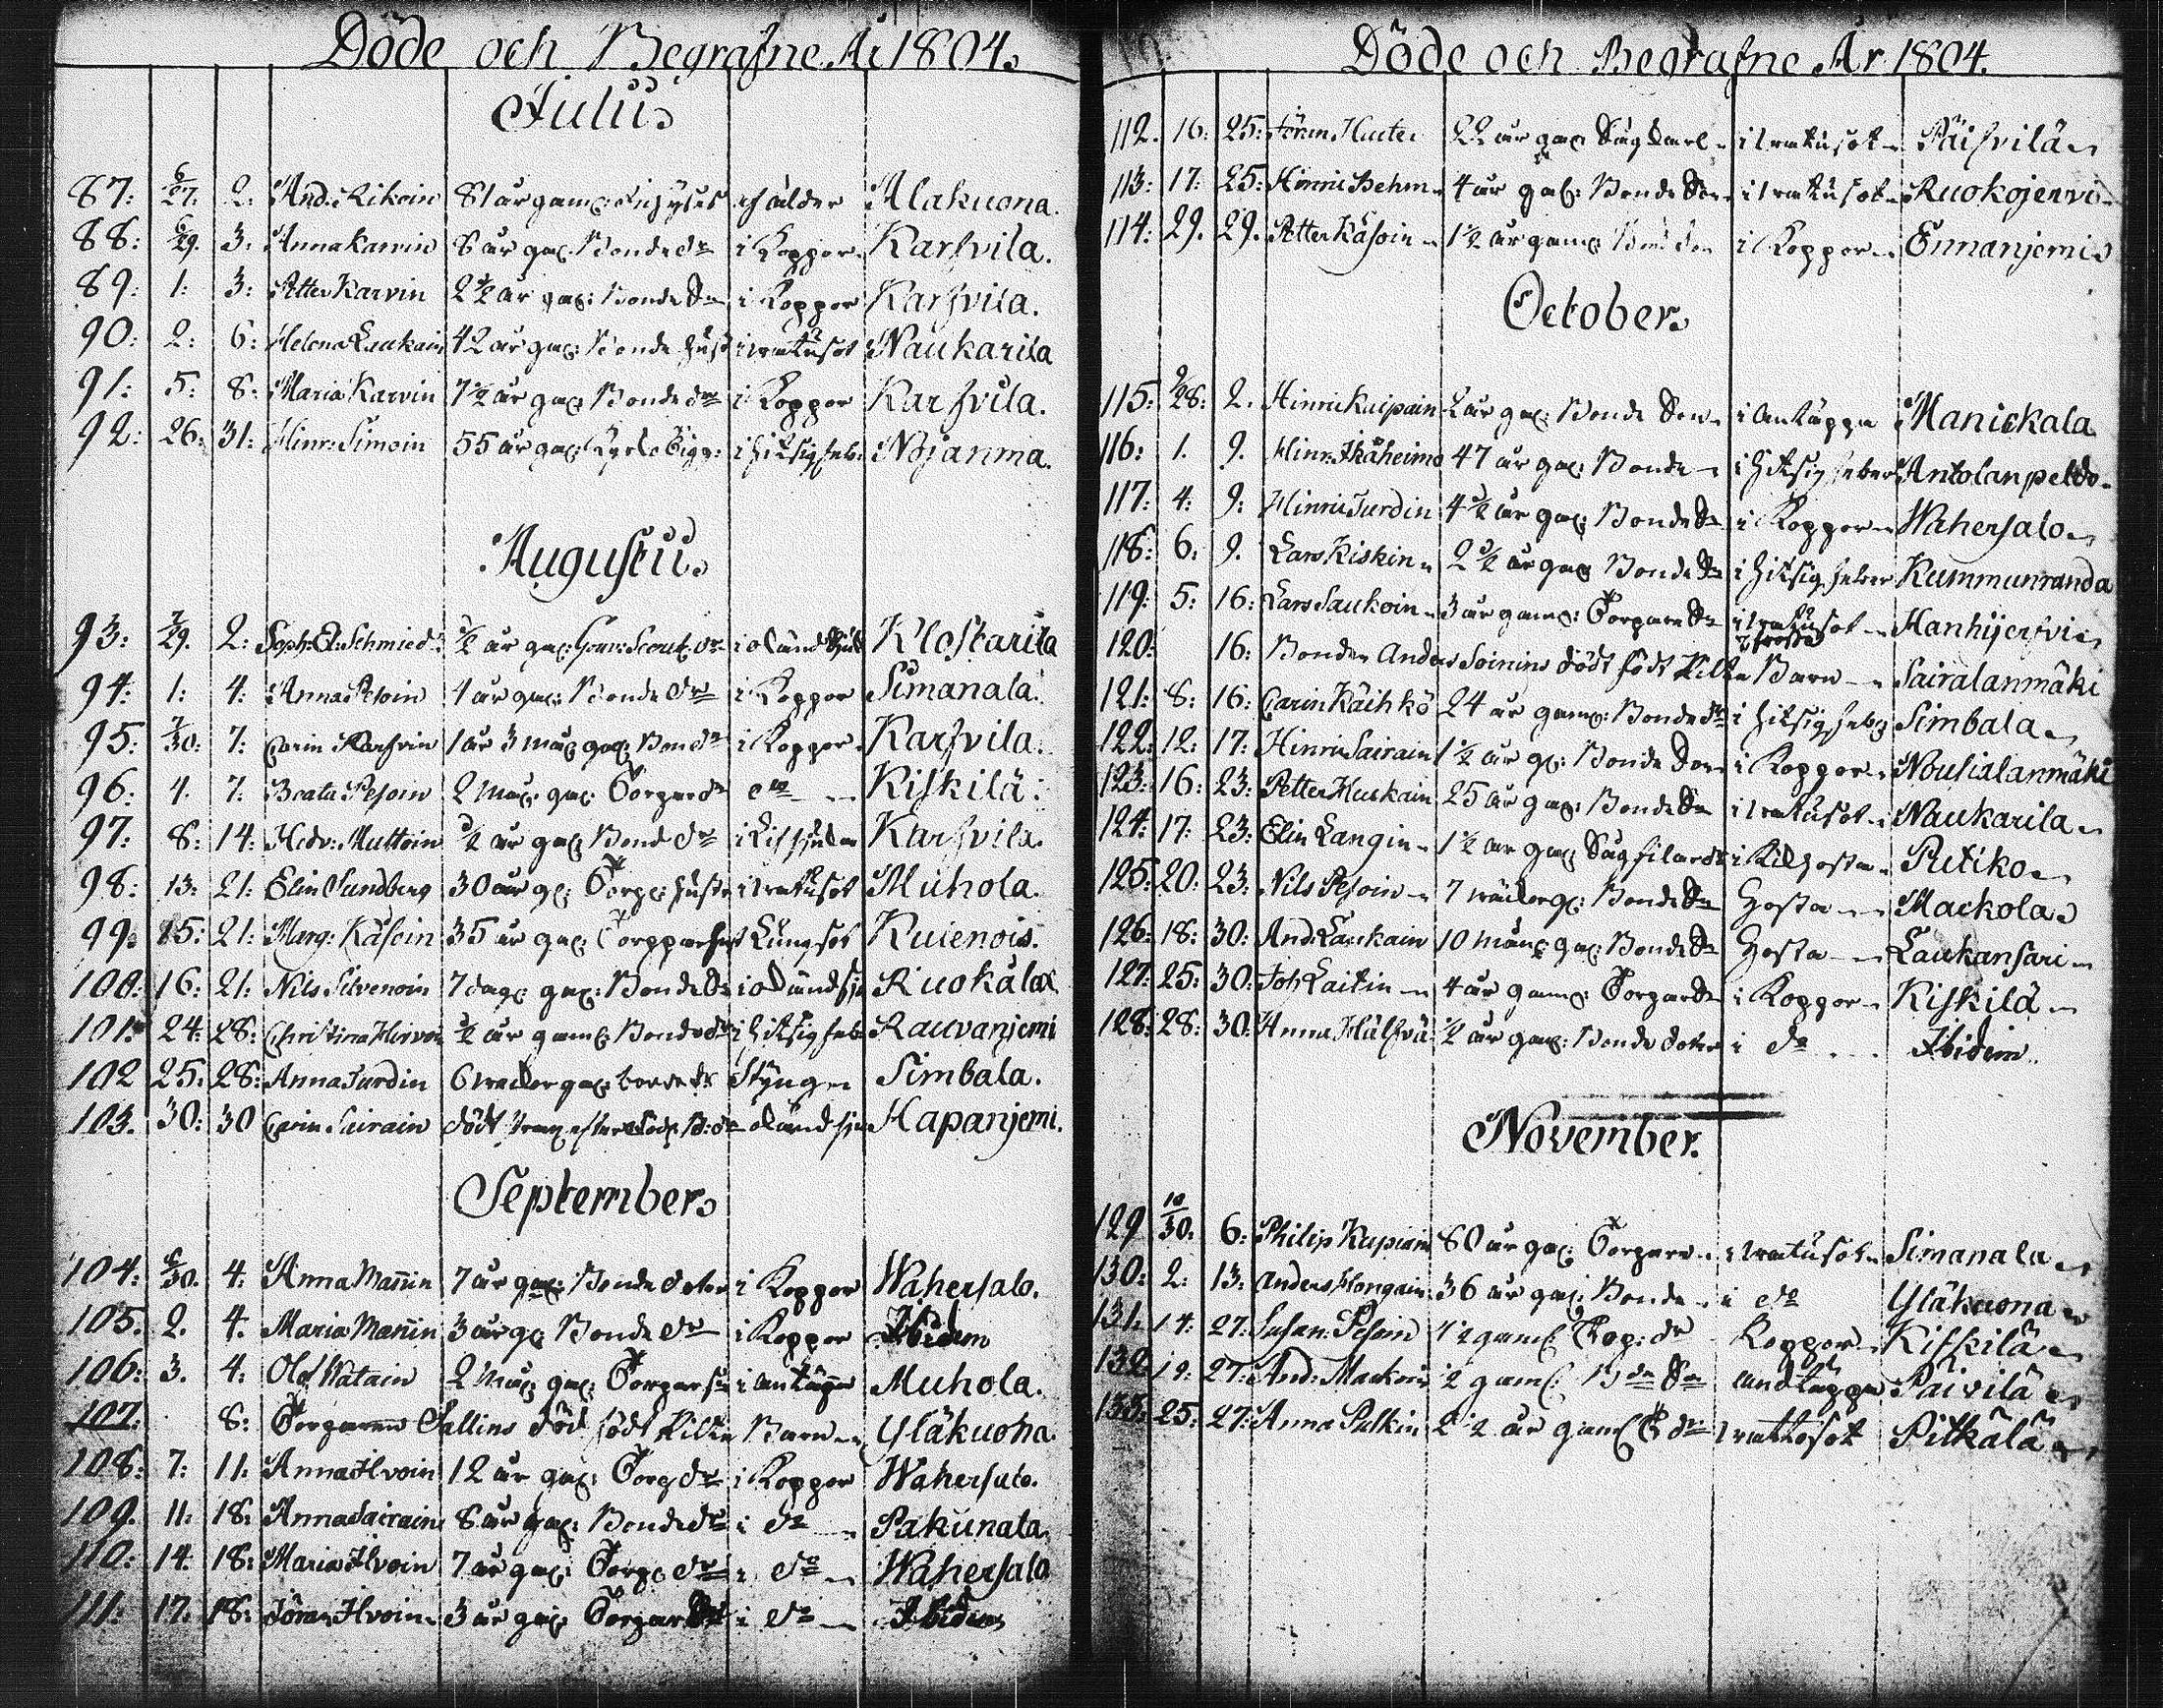 Döde och Begrafne År 1804.
Julii
87: 6/27. 2: And: Rikoin 81 år gam: Inhyses af ålder Alakuona.
88: 6/29. 3: Anna Karvin 8 år gal: Bonde dr i Koppor Karfvila.
89: 1: 3: Petter Karvin 2 1/2 år gal: Bonde Sn i Koppor Karfvila.
90: 2: 6: Helena Laukain 42 år gal: Bonde hust i rötusot Naukarila
91: 5: 8: Maria Karvin 7 1/2 år gal: Bonde dr i Koppor Karfvila.
92: 26: 31: Hinr: Simoin 55 år gal: i hitsig feb: Nojanma.
Augusti
93: 7/29. 2: Soph: El: Schmied: 1/2 år gal: Klostarila
94: 1: 4: Anna Pesoin 1 år gal: Bonde dr i Koppor Simanala.
95: 7/30: 7: Carin Karfvin 1 år 3 mån gal: Bon dr i Koppor Karfvila.
96: 4. 7: Beata Pesoin 2 mån gal: Torpar dr do Kiskilä:
97: 8: 14: Hedv: Muttoin 1/2 år gal: Bond dr Karfvila.
98: 13: 21: Elin Sundberg 30 år gl: Torp: hustr i rötusot Muhola.
99: 15: 21: Marg: Käsoin 35 år gal: Torppar hust Lungsot Kuienois.
100: 16: 21: Nils Silvenoin 7 dag: gal: Bonde Sn i okänd sj Ruokålax
101: 24: 28: Christina Hirvoin 1/2 år gaml: Bonde dr i hitsig feb Rauvanjemi
102 25: 28: Anna Turdin 6 veckor gal: bonde dr Styng Simbala.
103. 30: 30 Carin Sairain okänd sju Hapanjemi.
September
104: 8/30. 4: Anna Mannin 7 år gal: Bonde doter i Koppor Wahersalo.
105. 2. 4. Maria Mannin 3 år gl Bonde dr i Koppor Ibidem
106: 3. 4: Olof Watain 2 mån gal: Torpar sn i andtäppa Muhola.
107: 8: Torparen Tallins död född Piltu Barn Yläkuona.
108: 7: 11: Anna Ilvoin 12 år gal: Torp dr i Koppor Wahersalo.
109. 11. 18: Anna Sairain 8 år gal: Bonde dr i do Pakunala.
110: 14. 18: Maria Ilvoin 7 år gal: Torp: dr i do Wahersalo
111: 17: 18: Jöran Ilvoin 3 år gal: Torpar Sn i do Ibidem
Döde och Begrafne År 1804.
112. 16: 25: Jöran 22 år gal: Sågkarl i rötusot Päifvilä
113: 17: 25: Hinric Behm 4 år gal: Bonde Son i rötusot Ruokojervi
114: 29. 29. Petter Käsoin 1 1/2 år gam: Bond Son i Koppor Ennanjemi
October
115: 9/28: 2. Hinric Kuipain 2 år gal: Bonde Son i Antäppa Manickala
116: 1. 9. Hinr: Ikäheimo 47 år gal: Bonde i hitsig feber Antolanpeldo
117: 4: 9: Hinric Turdin 4 1/2 år gal: Bonde Sn i Koppor Wahersalo
118: 6: 9. Lars Kiskin 2 1/2 år gal: Bonde Sn i hitsig feber Kummunranda
119: 5: 16: Lars Saukoin 3 år gam: Torpare Sn i rötusot Hanhijerfvi
120: 16: Bonden Anders Soinins dödt född Piltu Barn Sairalanmäki
121: 8: 16: Carin Käihkö 24 år gam: Bonde dr i hitsig feb: Simbala
122: 12: 17: Hinric Sairain 1 1/2 år gl: Bonde Son i Koppor Nousialanmäki
123: 16: 23: Petter Kuskain 25 år gal: Bonde Sn i rötusot Naukarila
124: 17: 23: Elin Langin 1 1/2 år gal: i Kikhosta Putiko
125: 20: 23: Nils Pesoin 7 veckor gl: Bonde Sn Hosta Mackola
126: 18: 30: And: Laukain 10 mån: gal: Bonde Sn Hosta Laukansari
127: 25: 30: Joh: Laitin 4 år gam: Torpar Sn i Koppor Kiskilä
128: 28: 30: Anna Hälfvä 1/2 år gam: Bonde doter i do Ibidem
November.
129 10/30. 6: Philip Kupiain 80 år gal: Torpare i rötusot Simanala
130: 2: 13: Anders Kongain 36 år gal: Bonde i do Yläkuona
131. 14: 27: Susan: Pesoin gaml: dr Koppor Kiskilä
132 19: 27: And: Mackoin 1/2 gaml: Bde Sn andtäppa Päivilä
133: 25: 27: Anna Pulkin 2 1/2 år gaml T dr i rötusot Pitkälä